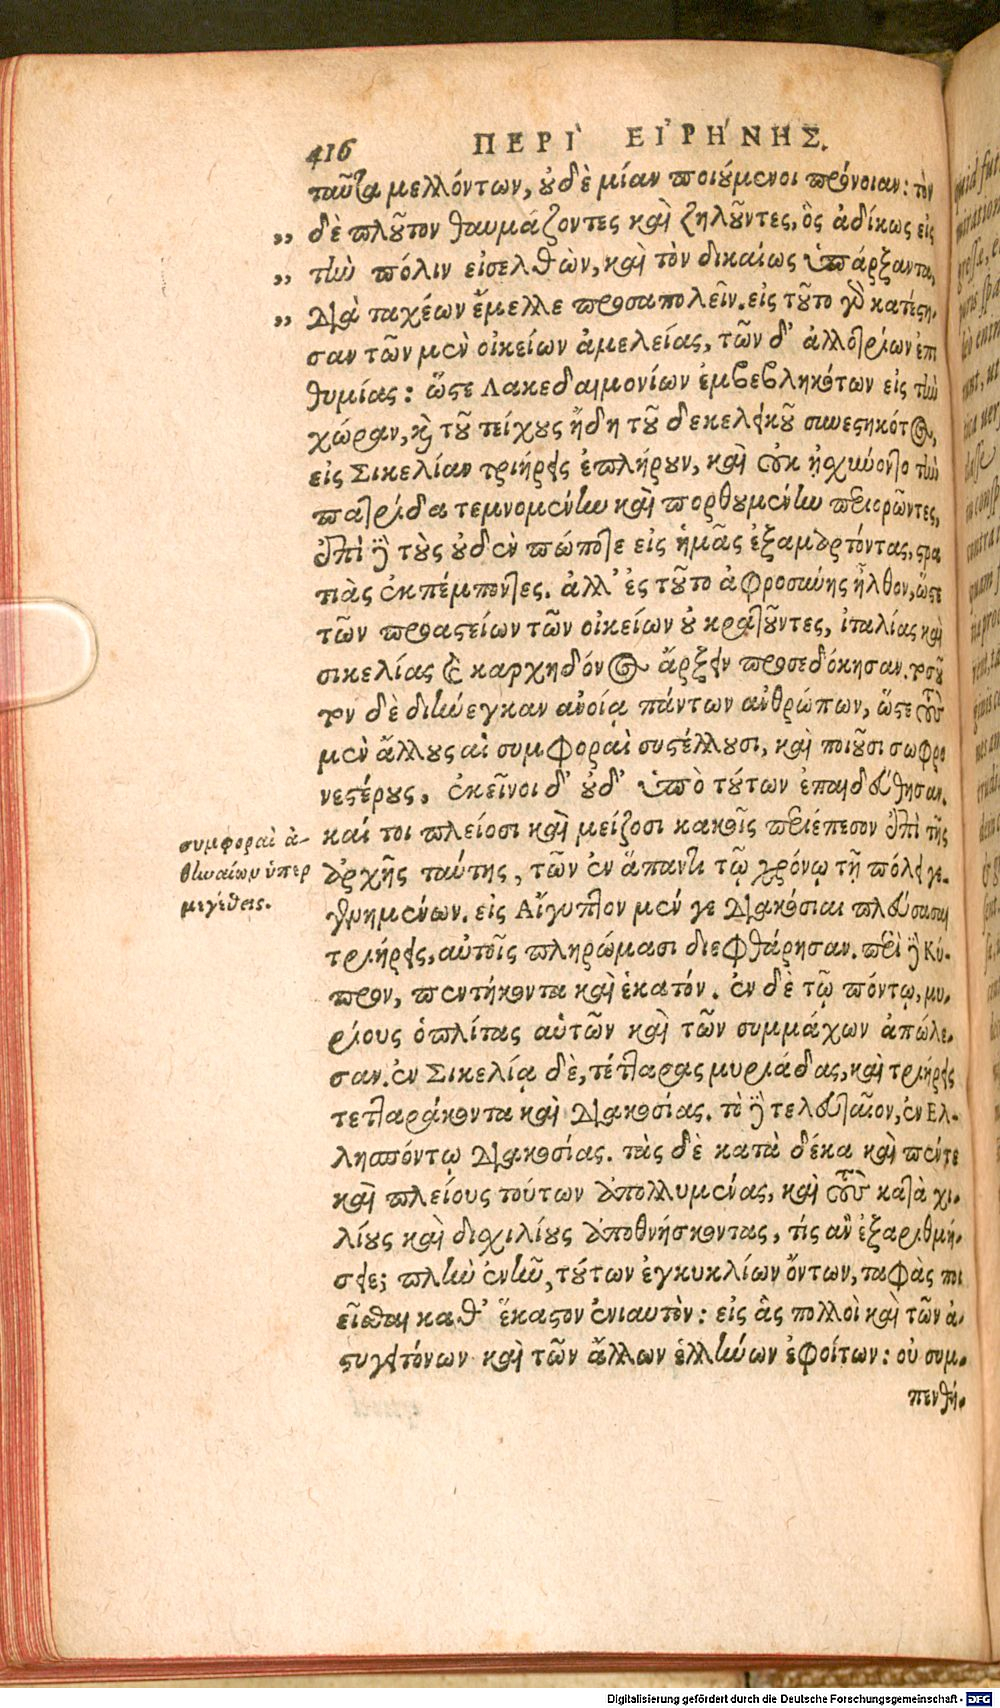 416 ΠΕΡΙ ΕΙΡΗΝΗΣ.
ταῦτα μελλόντων, οὐδὲ μίαν ποιούμενοι πρόνοιαν: τὸν
„ δὲ πλοῦτον θαυμάζοντες καὶ ζηλοῦντες, ὃς ἀδίκως εἰς
„ τὴν πόλιν εἰσελθὼν, καὶ τὸν δικαίως ὑπάρξαντα,
„ διὰ ταχέων ἔμελλε προσαπολεῖν. εἰς τοῦτο γὰρ κατέστη-
σαν τῶν μὲν οἰκείων ἀμελείας, τῶν δ' ἀλλοτρίων ἐπι
θυμίας: ὥστε Λακεδαιμονίων ἐμβεβληκότων εἰς τὴν
χώραν, καὶ τοῦ τείχους ἤδη τοῦ δεκελεικοῦ συνεστηκότος,
εἰς Σικελίαν τριήρεις ἐπλήρουν, καὶ οὐκ ᾐσχύνοντο τὴν
πατρίδα τεμνομένην καὶ πορθουμένην περιορῶντες,
ἐπὶ δὲ τοὺς οὐδὲν πώποτε εἰς ἡμᾶς ἐξαμαρτόντας, στρα
τιὰς ἐκπέμποντες. ἀλλ' ἐς τοῦτο ἀφροσύνης ἦλθον, ὥστε
τῶν προαστείων τῶν οἰκείων οὐ κρατοῦντες, ἰταλίας καὶ
σικελίας καὶ καρχηδόνος ἄρξειν προσεδόκησαν. τοσοῦ
τον δὲ διήνεγκαν ἀνοίᾳ πάντων ἀνθρώπων, ὥστε τοὺς
μὲν ἄλλους αἱ συμφοραὶ συστέλλουσι, καὶ ποιοῦσι σωφρο
νεστέρους, ἐκεῖνοι δ' οὐδ' ὑπὸ τούτων ἐπαιδεύθησαν.
καί τοι πλείοσι καὶ μείζοσι κακοῖς περιέπεσον ἐπὶ τῆς
ἀρχῆς ταύτης, τῶν ἐν ἅπαντι τῷ χρόνῳ τῇ πόλει γε-
γενημένων. εἰς Αἴγυπτον μέν γε διακόσιαι πλεύσασαι
τριήρεις, αὐτοῖς πληρώμασι διεφθάρησαν. περὶ δὲ Κύ-
προν, πεντήκοντα καὶ ἑκατόν. ἐν δὲ τῷ πόντῳ, μυ-
ρίους ὁπλίτας αὑτῶν καὶ τῶν συμμάχων ἀπώλε-
σαν. ἐν Σικελίᾳ δὲ, τέτταρας μυριάδας, καὶ τριήρεις
τετταράκοντα καὶ διακοσίας. τὸ δὲ τελευταῖον, ἐν Ελ-
λησπόντῳ διακοσίας. τὰς δὲ κατὰ δέκα καὶ πέντε
καὶ πλείους τούτων ἀπολλυμένας, καὶ τοὺς κατὰ χι-
λίους καὶ διχιλίους ἀποθνήσκοντας, τίς ἂν ἐξαριθμή-
σειε; πλὴν ἓν ἦν, τούτων ἐγκυκλίων ὄντων, ταφὰς ποι
εῖσθαι καθ' ἕκαστον ἐνιαυτὸν: εἰς ἃς πολλοὶ καὶ τῶν ἀ-
στυγειτόνων καὶ τῶν ἄλλων ἑλλήνων ἐφοίτων: οὐ συμ-
πενθή-
συμφοραὶ ἀ-
θηναίων ὑπερ
μεγέθεις.
Digitalisierung gefördert durch die Deutsche Forschungsgemeinschaft - DFG